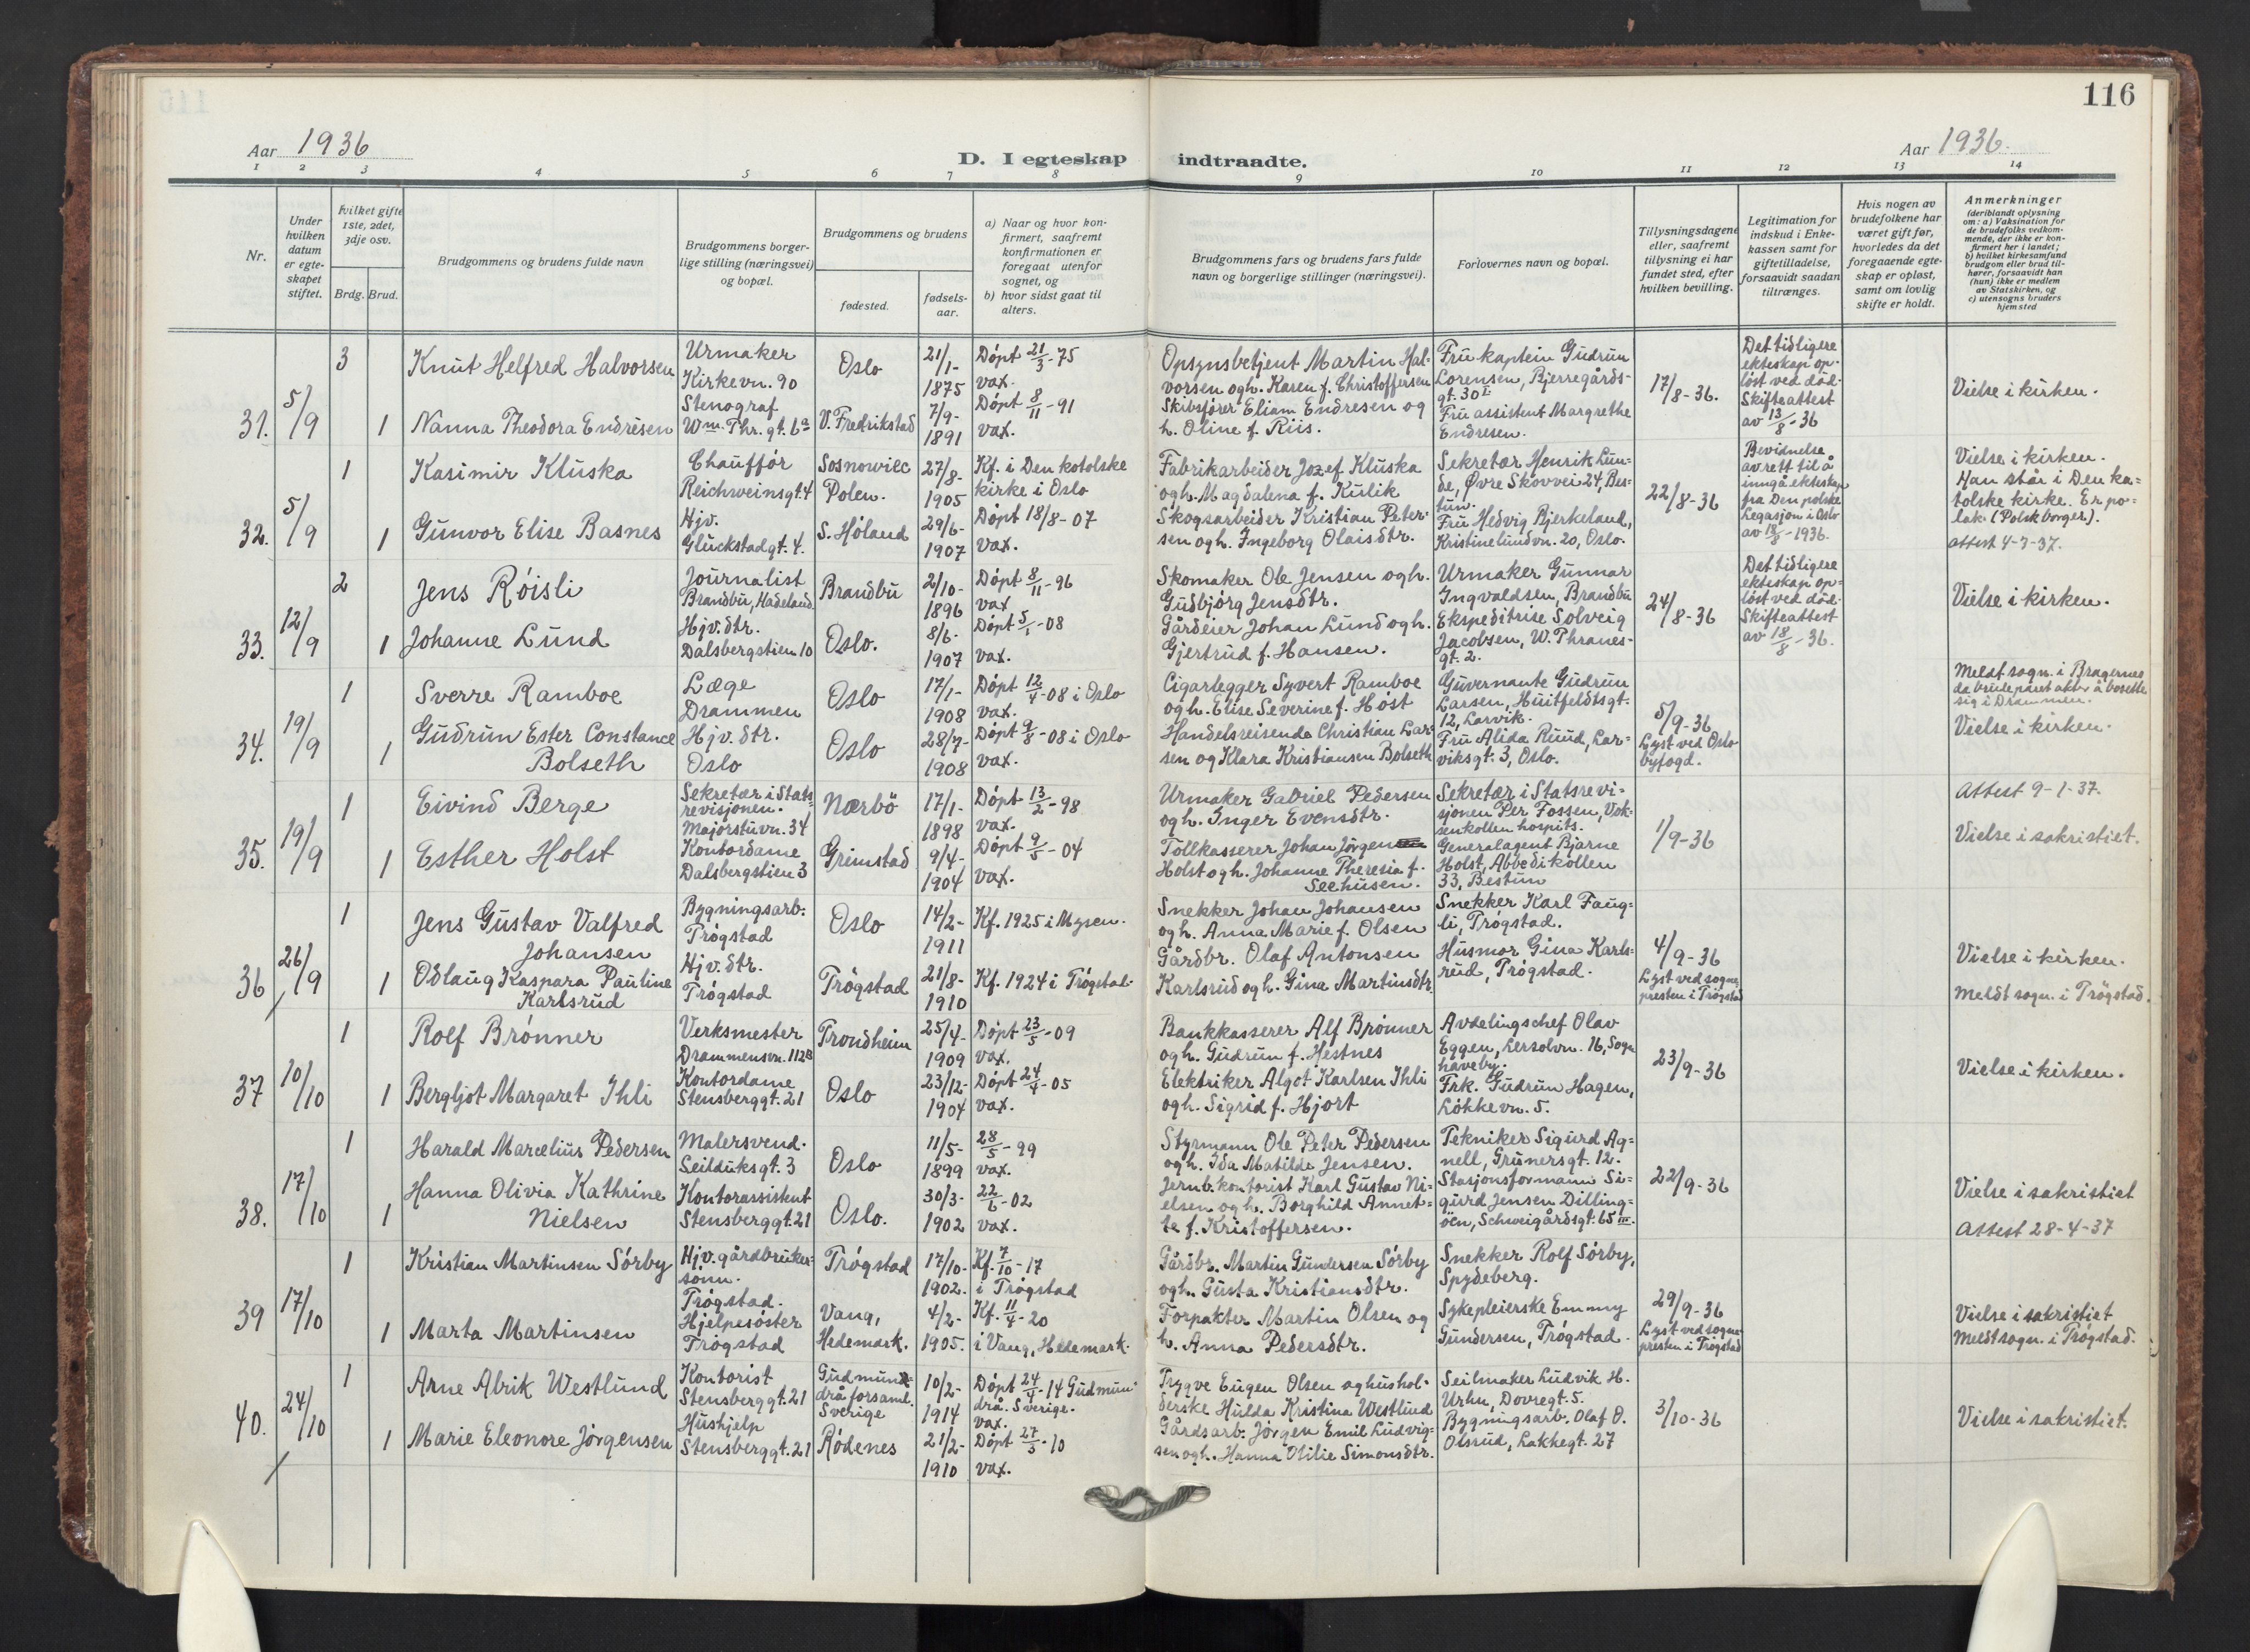 116
Aar 1936
D. I egteskap indtraadte.
Aar 1936.
1 2 3 4 5 6 7 8 9 10 11 12 13 14
Nr.
Under hvilken datum er egteskapet stiftet.
Hvilket gifte 1ste, 2det, 3dje osv.
Brdg. Brud.
Brudgommens og brudens fulde navn
Brudgommens borgerlige stilling (næringsvei) og bopæl.
Brudgommens og brudens
fødested.
fødselsaar.
a) Naar og hvor konfirmert, saafremt konfirmationen er foregaat utenfor sognet, og
b) hvor sidst gaat til alters.
Brudgommens fars og brudens fars fulde navn og borgerlige stillinger (næringsvei).
Forlovernes navn og bopæl.
Tillysningsdagene eller, saafremt tillysning ei har fundet sted, efter hvilken bevilling.
Legitimation for indskud i Enkekassen samt for giftetilladelse, forsaavidt saadan tiltrænges.
Hvis nogen av brudefolkene har været gift før, hvorledes da det foregaaende egteskap er opløst, samt om lovlig skifte er holdt.
Anmerkninger
(deriblandt oplysning om: a) Vaksination for de brudefolks vedkommende, der ikke er konfirmert her i landet;
b) hvilket kirkesamfund brudgom eller brud tilhører, forsaavidt han (hun) ikke er medlem av Statskirken, og
c) utensogns bruders hjemsted
31. 5/9
3 Knut Helfred Halvorsen
Urmaker
Kirkevn. 90
Oslo
21/1-
1875
Døpt 21/3-75
vax.
Opsynsbetjent Martin Hal-
vorsen ogh. Karen f. Christoffersen
Fru kaptein Gudrun
Lorensen, Bjerregårds-
gt. 30 I
1 Nanna Theodora Endresen
Stenograf
Wm. Thr. gt. 6a
V. Fredrikstad
7/9-
1891
Døpt 8/11-91
vax.
Skibsfører Eliam Endresen og
h. Oline f. Riis.
Fru assistent Margrethe
Endresen.
17/8-36.
Det tidligere
ekteskap op-
løst ved død-
Skifteattest
av 13/8-36
Vielse i kirken.
32. 5/9
1 Kasimir Kluska
Chauffør
Reichweinsgt. 4
Sosnowiec
Polen.
27/8-
1905
Kf. i Den katolske
kirke i Oslo
Fabrikarbeider Jozef Kluska
ogh. Magdalena f. Kulik
Sekretær Henrik Lun-
de, Øvre Skovvei 24, Bes-
tun.
1 Gunvor Elise Basnes
Hjv.
Gluckstadgt. 4.
S. Høland
29/6-
1907
Døpt 18/8-07
vax.
Skogsarbeider Kristian Peter-
sen ogh. Ingeborg Olaisdtr.
Fru Hedvig Bjerkeland,
Kristinelundvn. 20, Oslo.
22/8-36
Bevidnelse
av rett til å
inngå ekteskap
fra Den polske
Legasjon i Oslo
av 18/8-1936.
Vielse i kirken.
Han står i Den ka-
tolske kirke. Er po-
lak. (Polsk borger).
attest 4-7-37.
33. 12/9
2 Jens Røisli
Journalist
Brandbu, Hadeland
Brandbu
2/10-
1896
Døpt 8/11-96
vax
Skomaker Ole Jensen ogh.
Gudbjørg Jensdtr.
Urmaker Gunnar
Ingvaldsen, Brandbu
1 Johanne Lund
Hjv. dtr.
Dalsbergstien 10
Oslo.
8/6-
1907
Døpt 5/1-08
vax.
Gårdeier Johan Lund ogh.
Gjertrud f. Hansen.
Ekspeditrise Solveig
Jacobsen, W. Thranes-
gt. 2.
24/8-36
Det tidligere
ekteskap op-
løst ved død-
Skifteattest
av 18/8-36.
Vielse i kirken.
34. 19/9
1 Sverre Ramboe
Læge
Drammen
Oslo
17/1-
1908
Døpt 12/4-08 i Oslo
vax.
Cigarlegger Syvert Ramboe
ogh. Elise Severine f. Høst
Guvernante Gudrun
Larsen, Huitfeldtsgt.
12, Larvik.
1 Gudrun Ester Constance
Bolseth
Hjv. dtr.
Oslo
Oslo
28/7-
1908
Døpt 9/8-08 i Oslo
vax.
Handelsreisende Christian Lar-
sen og Klara Kristiansen Bolseth
Fru Alida Ruud, Lar-
viksgt. 3, Oslo.
5/9-36
Lyst ved Oslo
byfogd.
Meldt sogn. i Bragernes
da brudeparet akter å bosette
sig i Drammen.
Vielse i kirken.
35. 19/9
1 Eivind Berge
Sekretær i Stats-
revisjonen.
Majorstuvn. 34
Nærbö
17/1-
1898
Døpt 13/2-98
vax.
Urmaker Gabriel Pedersen
ogh. Inger Evensdtr.
Sekretær i Statsrevi-
sjonen Per Fossen, Vok-
senkollen hospits.
1 Esther Holst
Kontordame
Dalsbergstien 3
Grimstad
9/4-
1904
Døpt 9/5-04
vax.
Tollkasserer Johan Jørgen
Holst ogh. Johanne Theresia f.
Seehusen.
Generalagent Bjarne
Holst, Abbedikollen
33, Bestun
1/9-36
Attest 9-1-37.
Vielse i sakristiet.
36 26/9
1 Jens Gustav Valfred
Johansen
Bygningsarb.
Trøgstad
Oslo
14/2-
1911
Kf. 1925 i Mysen.
Snekker Johan Johansen
ogh. Anna Marie f. Olsen
Snekker Karl Faug-
li, Trøgstad.
1 Odlaug Kaspara Pauline
Karlsrud
Hjv. dtr.
Trøgstad
Trøgstad
21/8-
1910
Kf. 1924 i Trøgstad.
Gårdbr. Olaf Antonsen
Karlsrud ogh. Gina Martinsdtr.
Husmor Gina Karls-
rud, Trøgstad.
4/9-36
Lyst ved sogne-
presten i Trøgstad
Vielse i kirken.
Meldt sogn. i Trøgstad.
37 10/10
1 Rolf Brønner
Verksmester
Drammensvn. 112B
Trondheim
25/4-
1909
Døpt 23/5-09
vax.
Bankkasserer Alf Brønner
ogh. Gudrun f. Hestnes
Avdelingschef Olav
Eggen, Lersolvn. 16, Sogn
haveby.
1 Bergljot Margaret Ihli
Kontordame
Stensberggt. 21
Oslo
23/12-
1904
Døpt 24/4-05
vax.
Elektriker Algot Karlsen Ihli
ogh. Sigrid f. Hjort
Frk. Gudrun Hagen,
Løkkevn. 5.
23/9-36
Vielse i kirken.
38. 17/10
1 Harald Marcelius Pedersen
Malersvend.
Seilduksgt. 3
Oslo
11/5-
1899
28/5-99
vax.
Styrmann Ole Peter Pedersen
ogh. Ida Matilde Jensen.
Tekniker Sigurd Ag-
nell, Grünersgt. 12.
1 Hanna Olivia Kathrine
Nielsen
Kontorassistent
Stensberggt. 21
Oslo.
30/3-
1902
22/6-02
vax.
Jernb. kontorist Karl Gustav Ni-
elsen ogh. Borghild Annet-
te f. Kristoffersen.
Stasjonsformann Si-
gurd Jensen Dilling-
öen, Schweigårdsgt. 65 III.
22/9-36
Vielse i sakristiet
Attest 28-4-37
39 17/10
1 Kristian Martinsen Sørby
Hjv. gårdbruker-
sønn.
Trøgstad.
Trøgstad
17/10-
1902.
Kf. 7/10-17
i Trøgstad
Gårdbr. Martin Gundersen Sørby
ogh. Gusta Kristiansdtr.
Snekker Rolf Sørby,
Spydeberg.
1 Marta Martinsen
Hjelpesøster
Trøgstad
Vang,
Hedemark.
4/2-
1905.
Kf. 11/4-20
i Vang, Hedemark.
Forpakter Martin Olsen og
h. Anna Pedersdtr.
Sykepleierske Emmy
Gundersen, Trøgstad.
29/9-36
Lyst ved sogne-
presten i Trøgstad
Vielse i sakristiet
Meldt sogn. i Trøgstad.
40. 24/10
1 Arne Alrik Westlund
Kontorist
Stensberggt. 21
Gudmund-
drå forsaml.
Sverige
10/2-
1914
Døpt 24/4-14 Gudmun-
drå. Sverige.
vax.
Trygve Eugen Olsen og hushol-
derske Hulda Kristina Westlund
Seilmaker Ludvik H.
Urhn, Dovregt. 5.
1 Marie Eleonore Jørgensen
Hushjelp
Stensberggt. 21
Rødenes
21/2-
1910
Døpt 27/3-10
vax.
Gårdsarb. Jørgen Emil Ludvig-
sen ogh. Hanna Otilie Simonsdtr.
Bygningsarb. Olaf O.
Olsrud, Lakkegt. 27
3/10-36
Vielse i sakristiet.